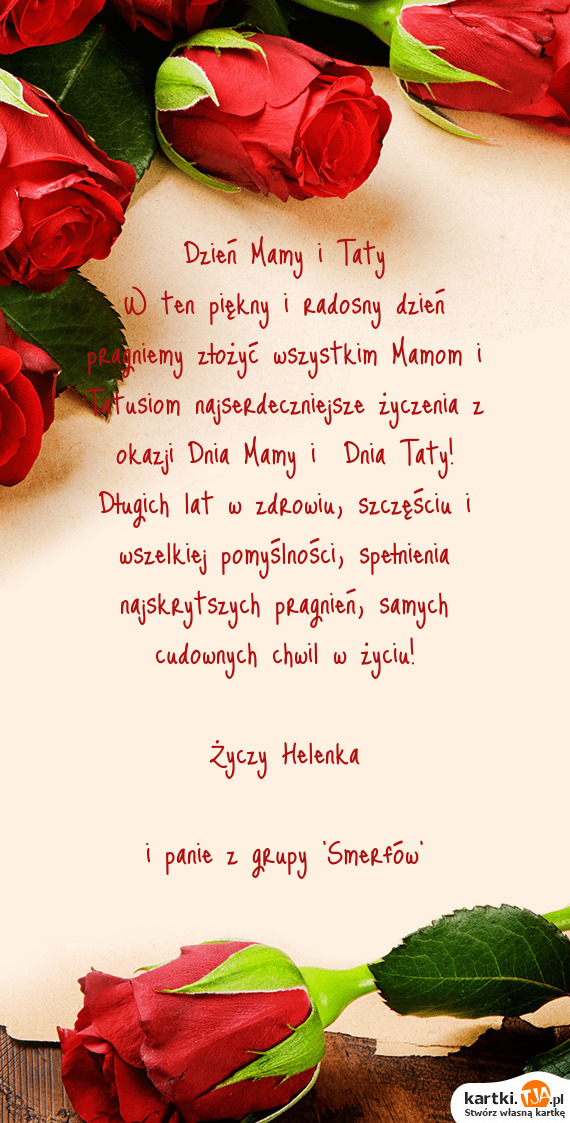 Dzień Mamy i Taty
W ten piękny i radosny dzień
pragniemy złożyć wszystkim Mamom i
Tatusiom najserdeczniejsze życzenia z
okazji Dnia Mamy i  Dnia Taty!
Długich lat w zdrowiu, szczęściu i
wszelkiej pomyślności, spełnienia
najskrytszych pragnień, samych
cudownych chwil w życiu!
Życzy Helenka
i panie z grupy 'Smerfów'
kartki.TJA.pl
Stwórz własną kartkę